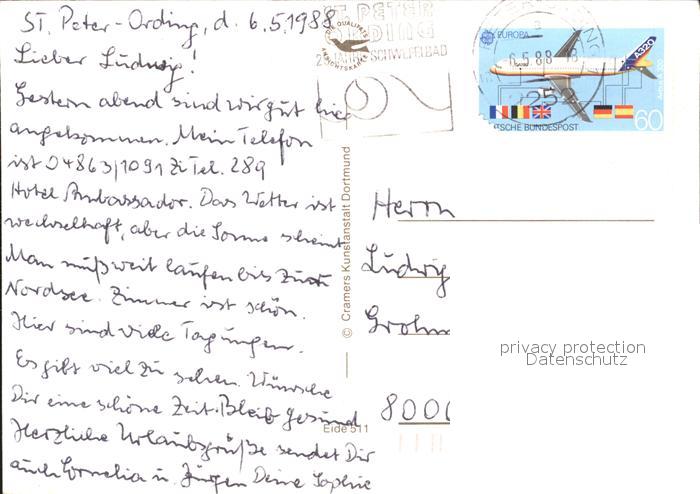 ST. Peter-Ording, d. 6.5.1988
Lieber Ludwig!
Gestern abend sind wir gut hier
angekommen. Mein Telefon
ist 04863/1091 Zi Tel. 289
Hotel Ambassador. Das Wetter ist
wechselhaft, aber die Sonne scheint
Man muß weit laufen bis zur
Nordsee. Zimmer ist schön.
Hier sind viele Tagungen.
Es gibt viel zu sehen. Wünsche
Dir eine schöne Zeit. Bleib gesund
Herzliche Urlaubsgrüße sendet Dir
auch Cornelia u. Jürgen Deine Sophie
ST. PETER
ORDING
SCHWEFELBAD
EUROPA
A320
6.5.88
DEUTSCHE BUNDESPOST
60
© Cramers Kunstanstalt Dortmund
Eide 511
Herrn
Ludwig
Grohm
800
privacy protection
Datenschutz